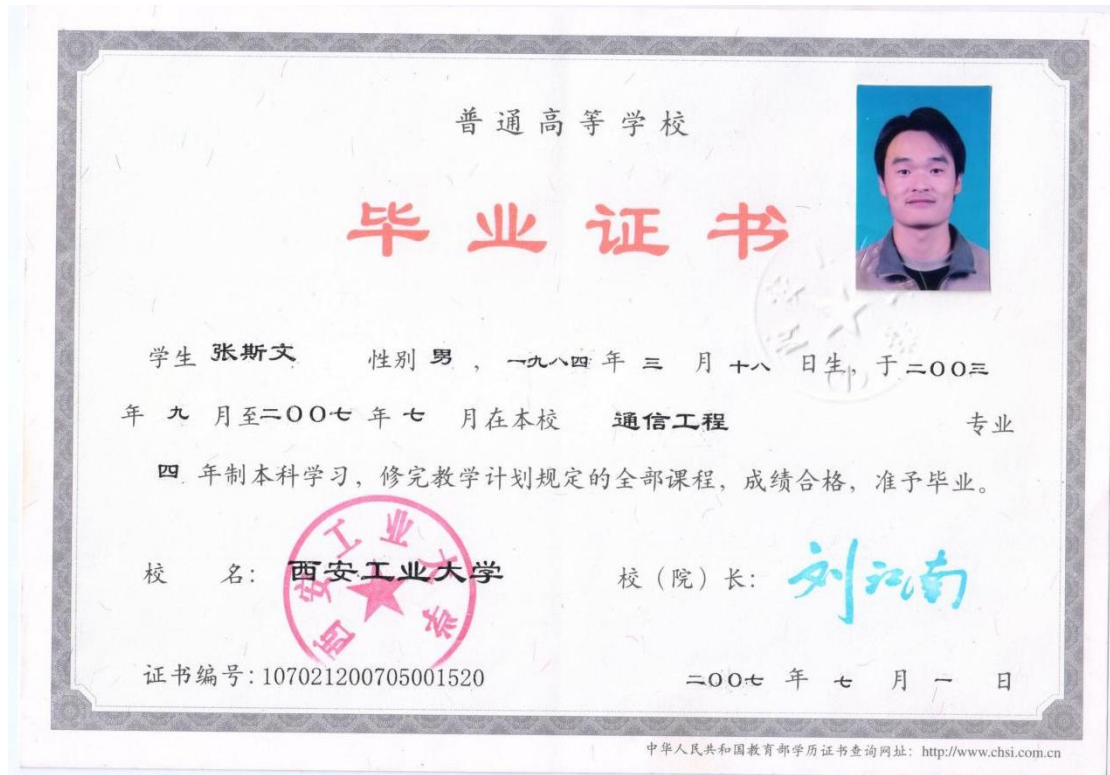 普通高等学校
毕业证书
学生 张斯文 性别 男 , 一九八四 年 三 月 十八 日生, 于 二00三
年 九 月至二00七 年 七 月在本校 通信工程 专业
四 年制本科学习, 修完教学计划规定的全部课程, 成绩合格, 准予毕业。
校 名: 西安工业大学 校（院）长: 刘江南
西安工业大学
证书编号: 107021200705001520 二00七 年 七 月 一 日
中华人民共和国教育部学历证书查询网址: http://www.chsi.com.cn